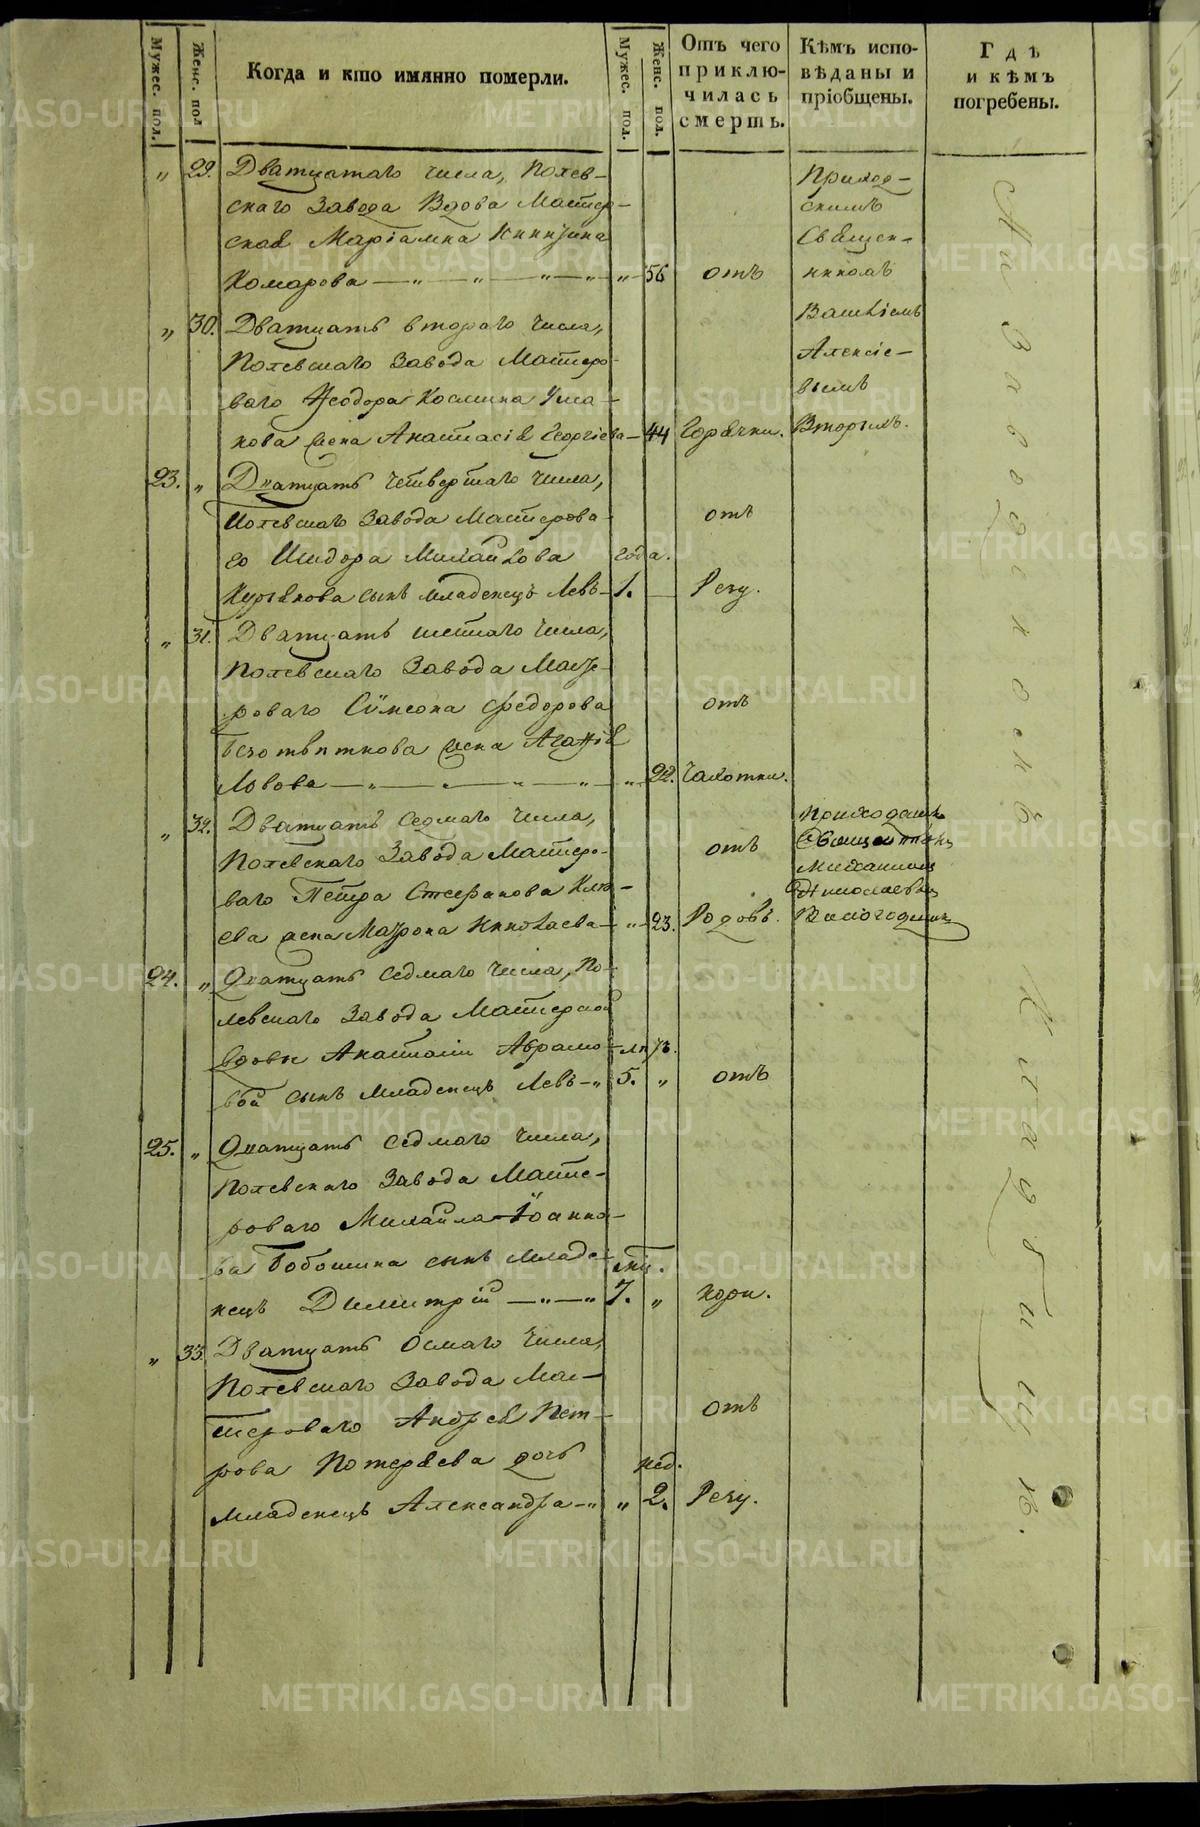 Мужес. пол.
Женс. пол
Когда и кто имянно померли.
Мужес. пол.
Женс. пол.
Отъ чего
приклю-
чилась
смерть.
Кѣмъ испо-
вѣданы и
пріобщены.
Гдѣ
и кѣмъ
погребены.
„ 29. Дватцатаго числа, Полев-
скаго Завода Вдова Мастер-
ская Маріамна
Комарова — „ — „ — „ — „ — „ 56 отъ
Приход-
скимъ
Священ-
никомъ
Василіемъ
Алексіе-
вымъ
Вторымъ.
„ 30. Дватцать втораго числа,
Полевскаго Завода Мастеро-
ваго Ѳеодора Космина Уша-
кова жена Анастасія Георгіева — 44 Горячки.
23. „ Дватцать четвертаго числа,
Полевскаго Завода Мастерова-
го Исидора Михайлова года. отъ
сынъ младенецъ Левъ — 1. — Резу.
„ 31. Дватцать шестаго числа,
Полевскаго Завода Масте-
роваго Сѵмеона Федорова отъ
жена Агафія
Львова — „ — „ — „ — „ — „ 22. Чахотки.
„ 32. Дватцать седмаго числа,
Полевскаго Завода Мастеро-
ваго Петра Стефанова Клю-
ева жена Матрона Николаева — „ — 23. отъ Родовъ.
24. „ Дватцать седмаго числа, По-
левскаго Завода Мастерской
вдовы Анастасіи Абрамо-
вой сынъ Младенецъ Левъ — „ 5. „ отъ
25. „ Дватцать седмаго числа,
Полевскаго Завода Масте-
роваго Михайла Іоанно-
ва Бобошина сынъ Младе- мѣц.
нецъ Димитрій — „ — „ 7. „ кори.
„ 33. Дватцать Осмаго числа,
Полевскаго Завода Мас-
тероваго Андрея Пет- отъ
рова Потеряева дочь нед.
младенецъ Александра — „ „ 2. Резу.
На Заводскомъ Кладбищѣ.
METRIKI.GASO-URAL.RU